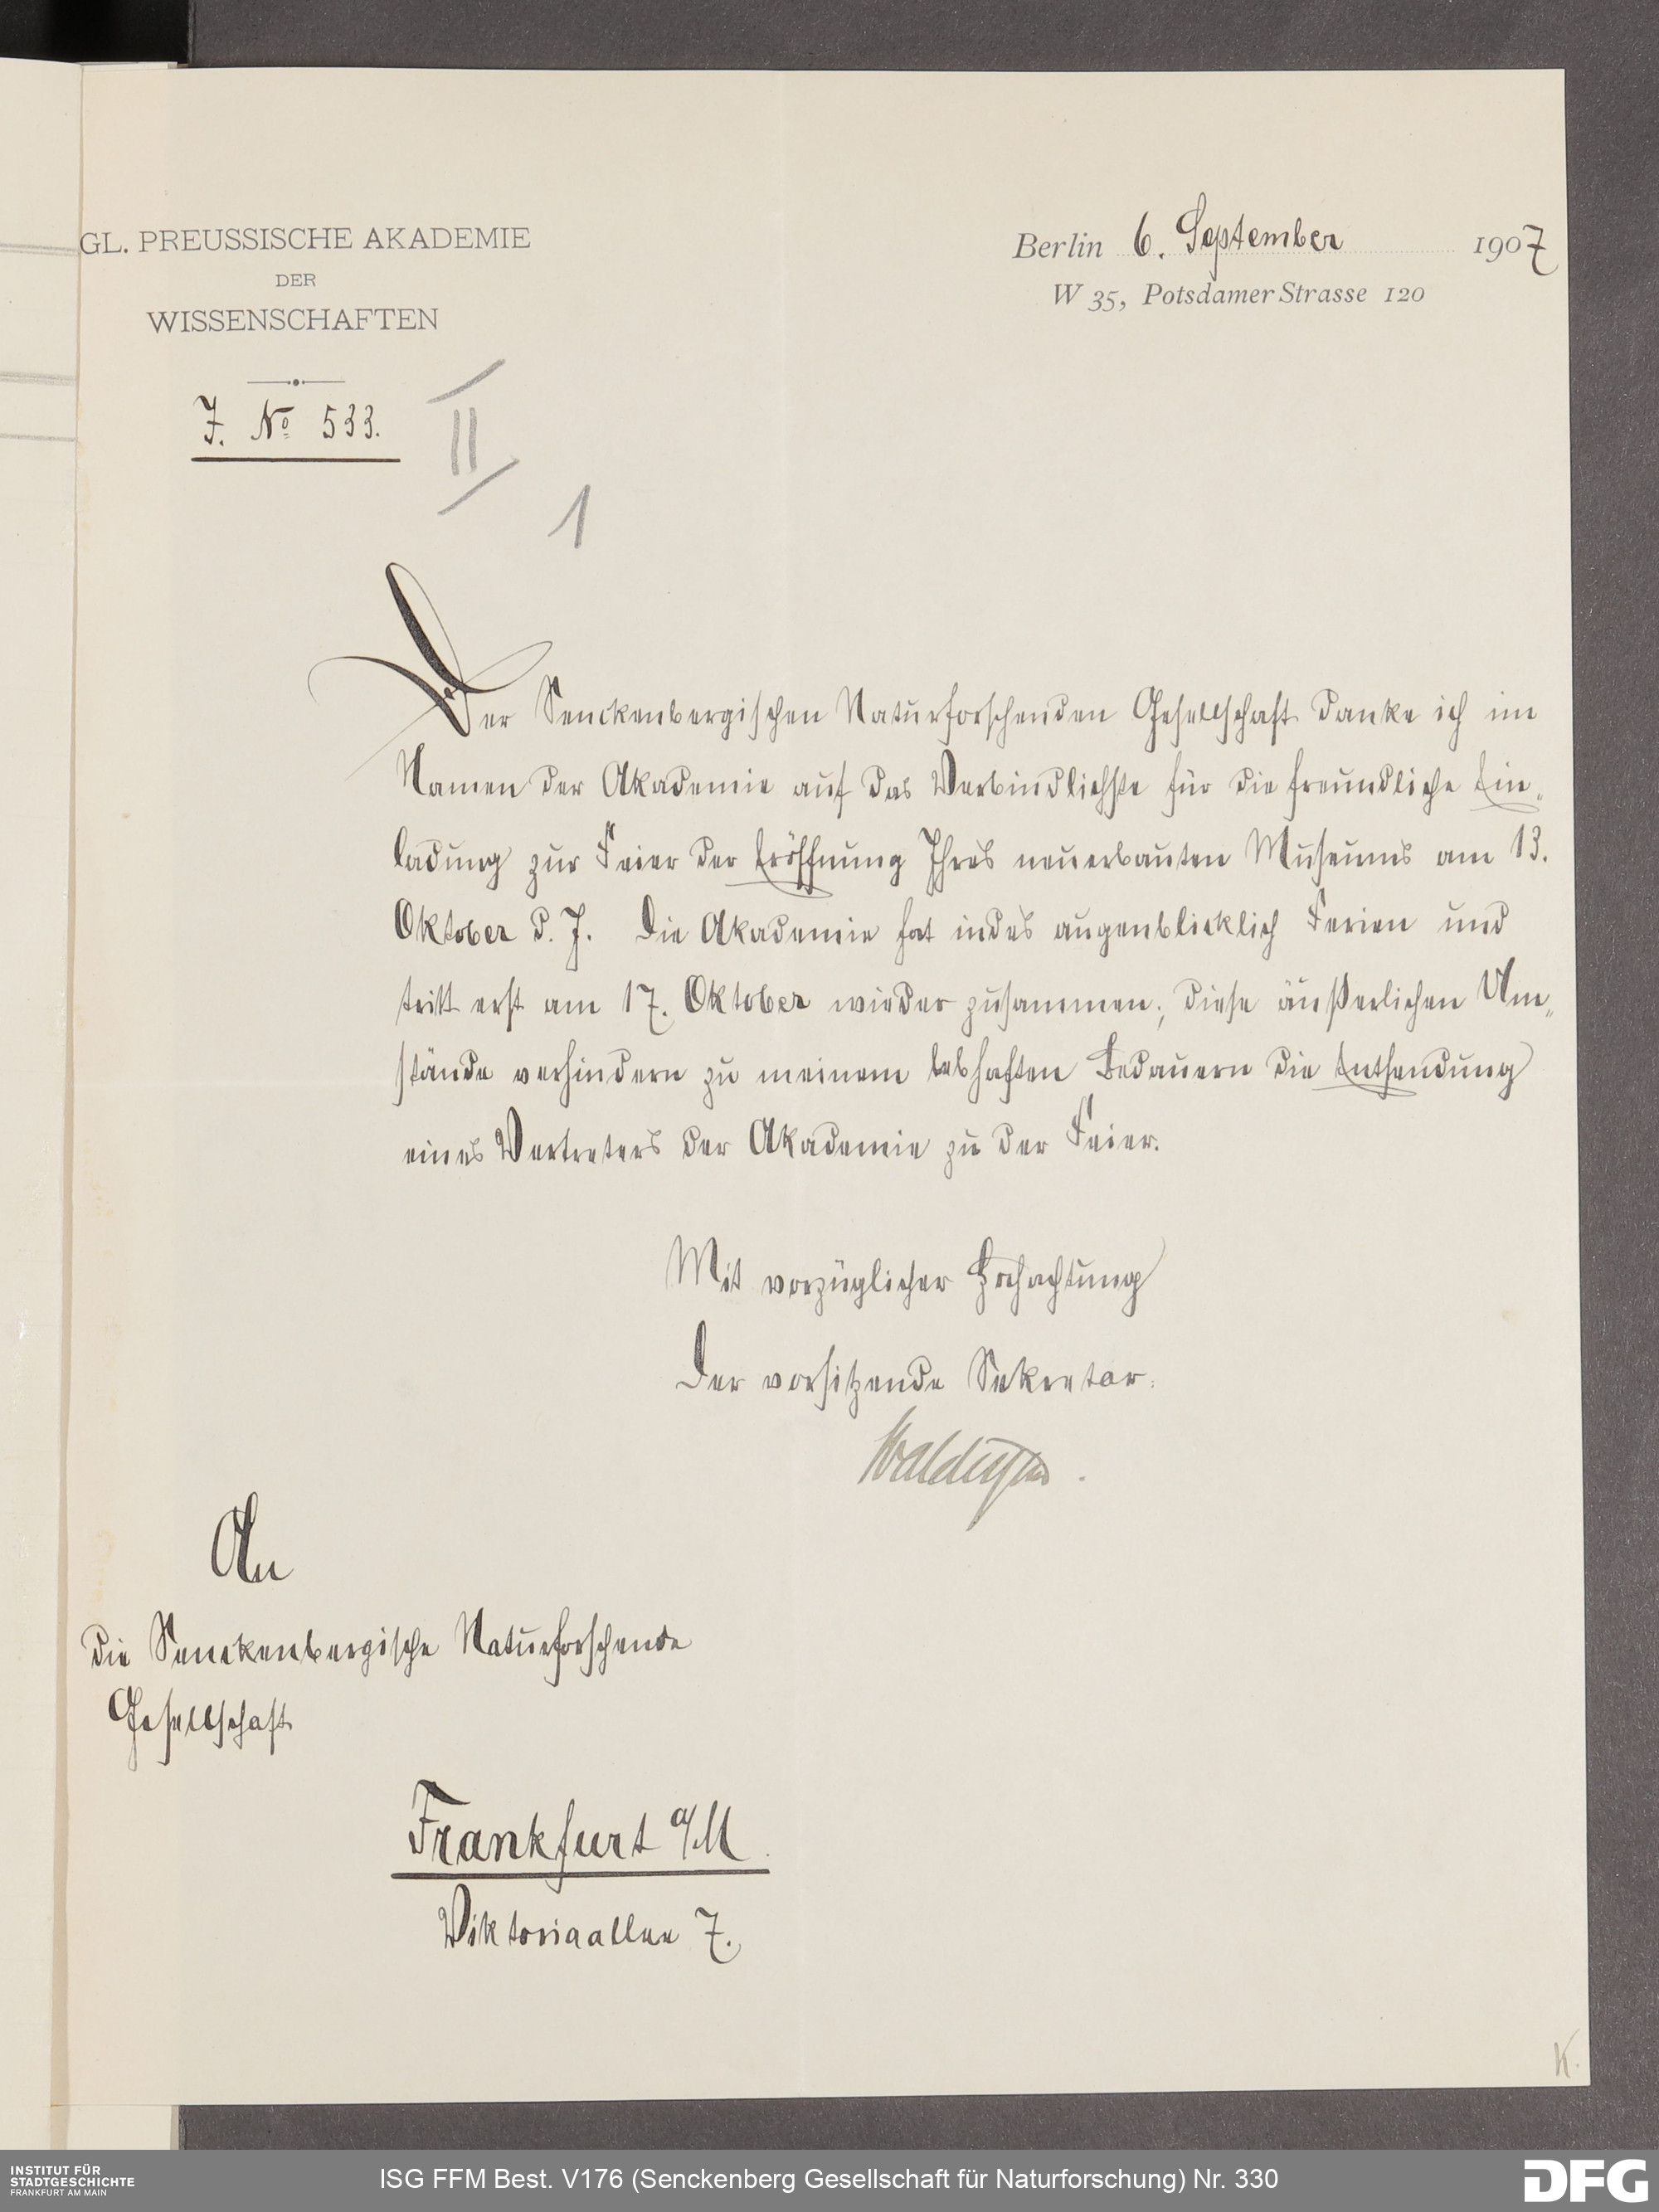 GL. PREUSSISCHE AKADEMIE
DER
WISSENSCHAFTEN
Berlin 6. September 1907
W 35, Potsdamer Strasse 120
J. No 533.
II
1
Der Senckenbergischen Naturforschenden Gesellschaft danke ich im
Namen der Akademie auf das Verbindlichste für die freundliche Ein„
ladung zur Feier der Eröffnung Ihres neuerbauten Museums am 13.
Oktober d. J. Die Akademie hat indes augenblicklich Ferien und
tritt erst am 17. Oktober wieder zusammen; diese äußerlichen Um„
stände verhindern zu meinem lebhaften Bedauern die Entsendung
eines Vertreters der Akademie zu der Feier.
Mit vorzüglicher Hochachtung
Der vorsitzende Sekretar.
Waldeyer.
An
die Senckenbergische Naturforschende
Gesellschaft
Frankfurt a/M.
Viktoriaallee 7.
K.
INSTITUT FÜR
STADTGESCHICHTE
FRANKFURT AM MAIN
ISG FFM Best. V176 (Senckenberg Gesellschaft für Naturforschung) Nr. 330
DFG